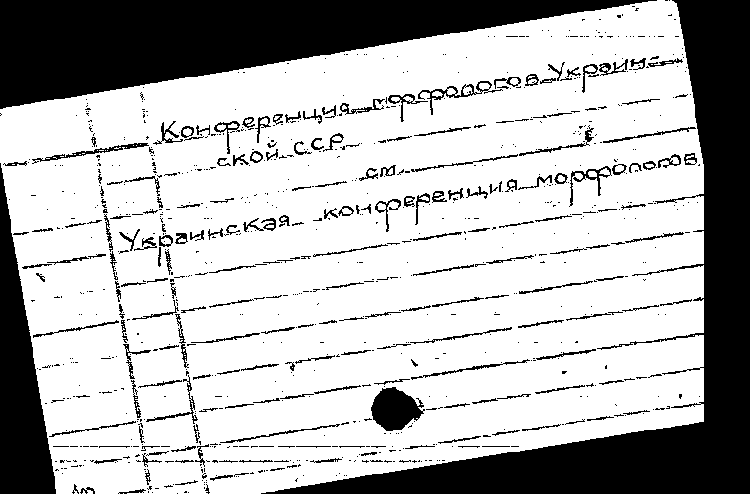 Конференция морфологов Украин-
ской ССР
см.
Украинская конференция морфологов